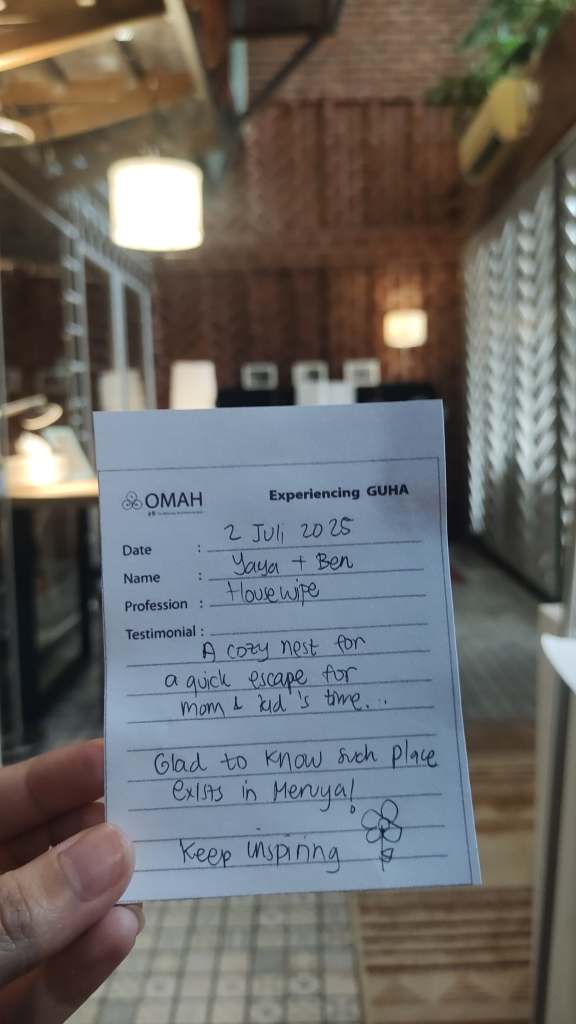 OMAH
Experiencing GUHA
Date : 2 Juli 2025
Name : Yaya + Ben
Profession : Housewipe
Testimonial :
A cozy nest for
a quick escape for
mom & kid's time...
Glad to know such place
exists in Meruya!
Keep inspiring